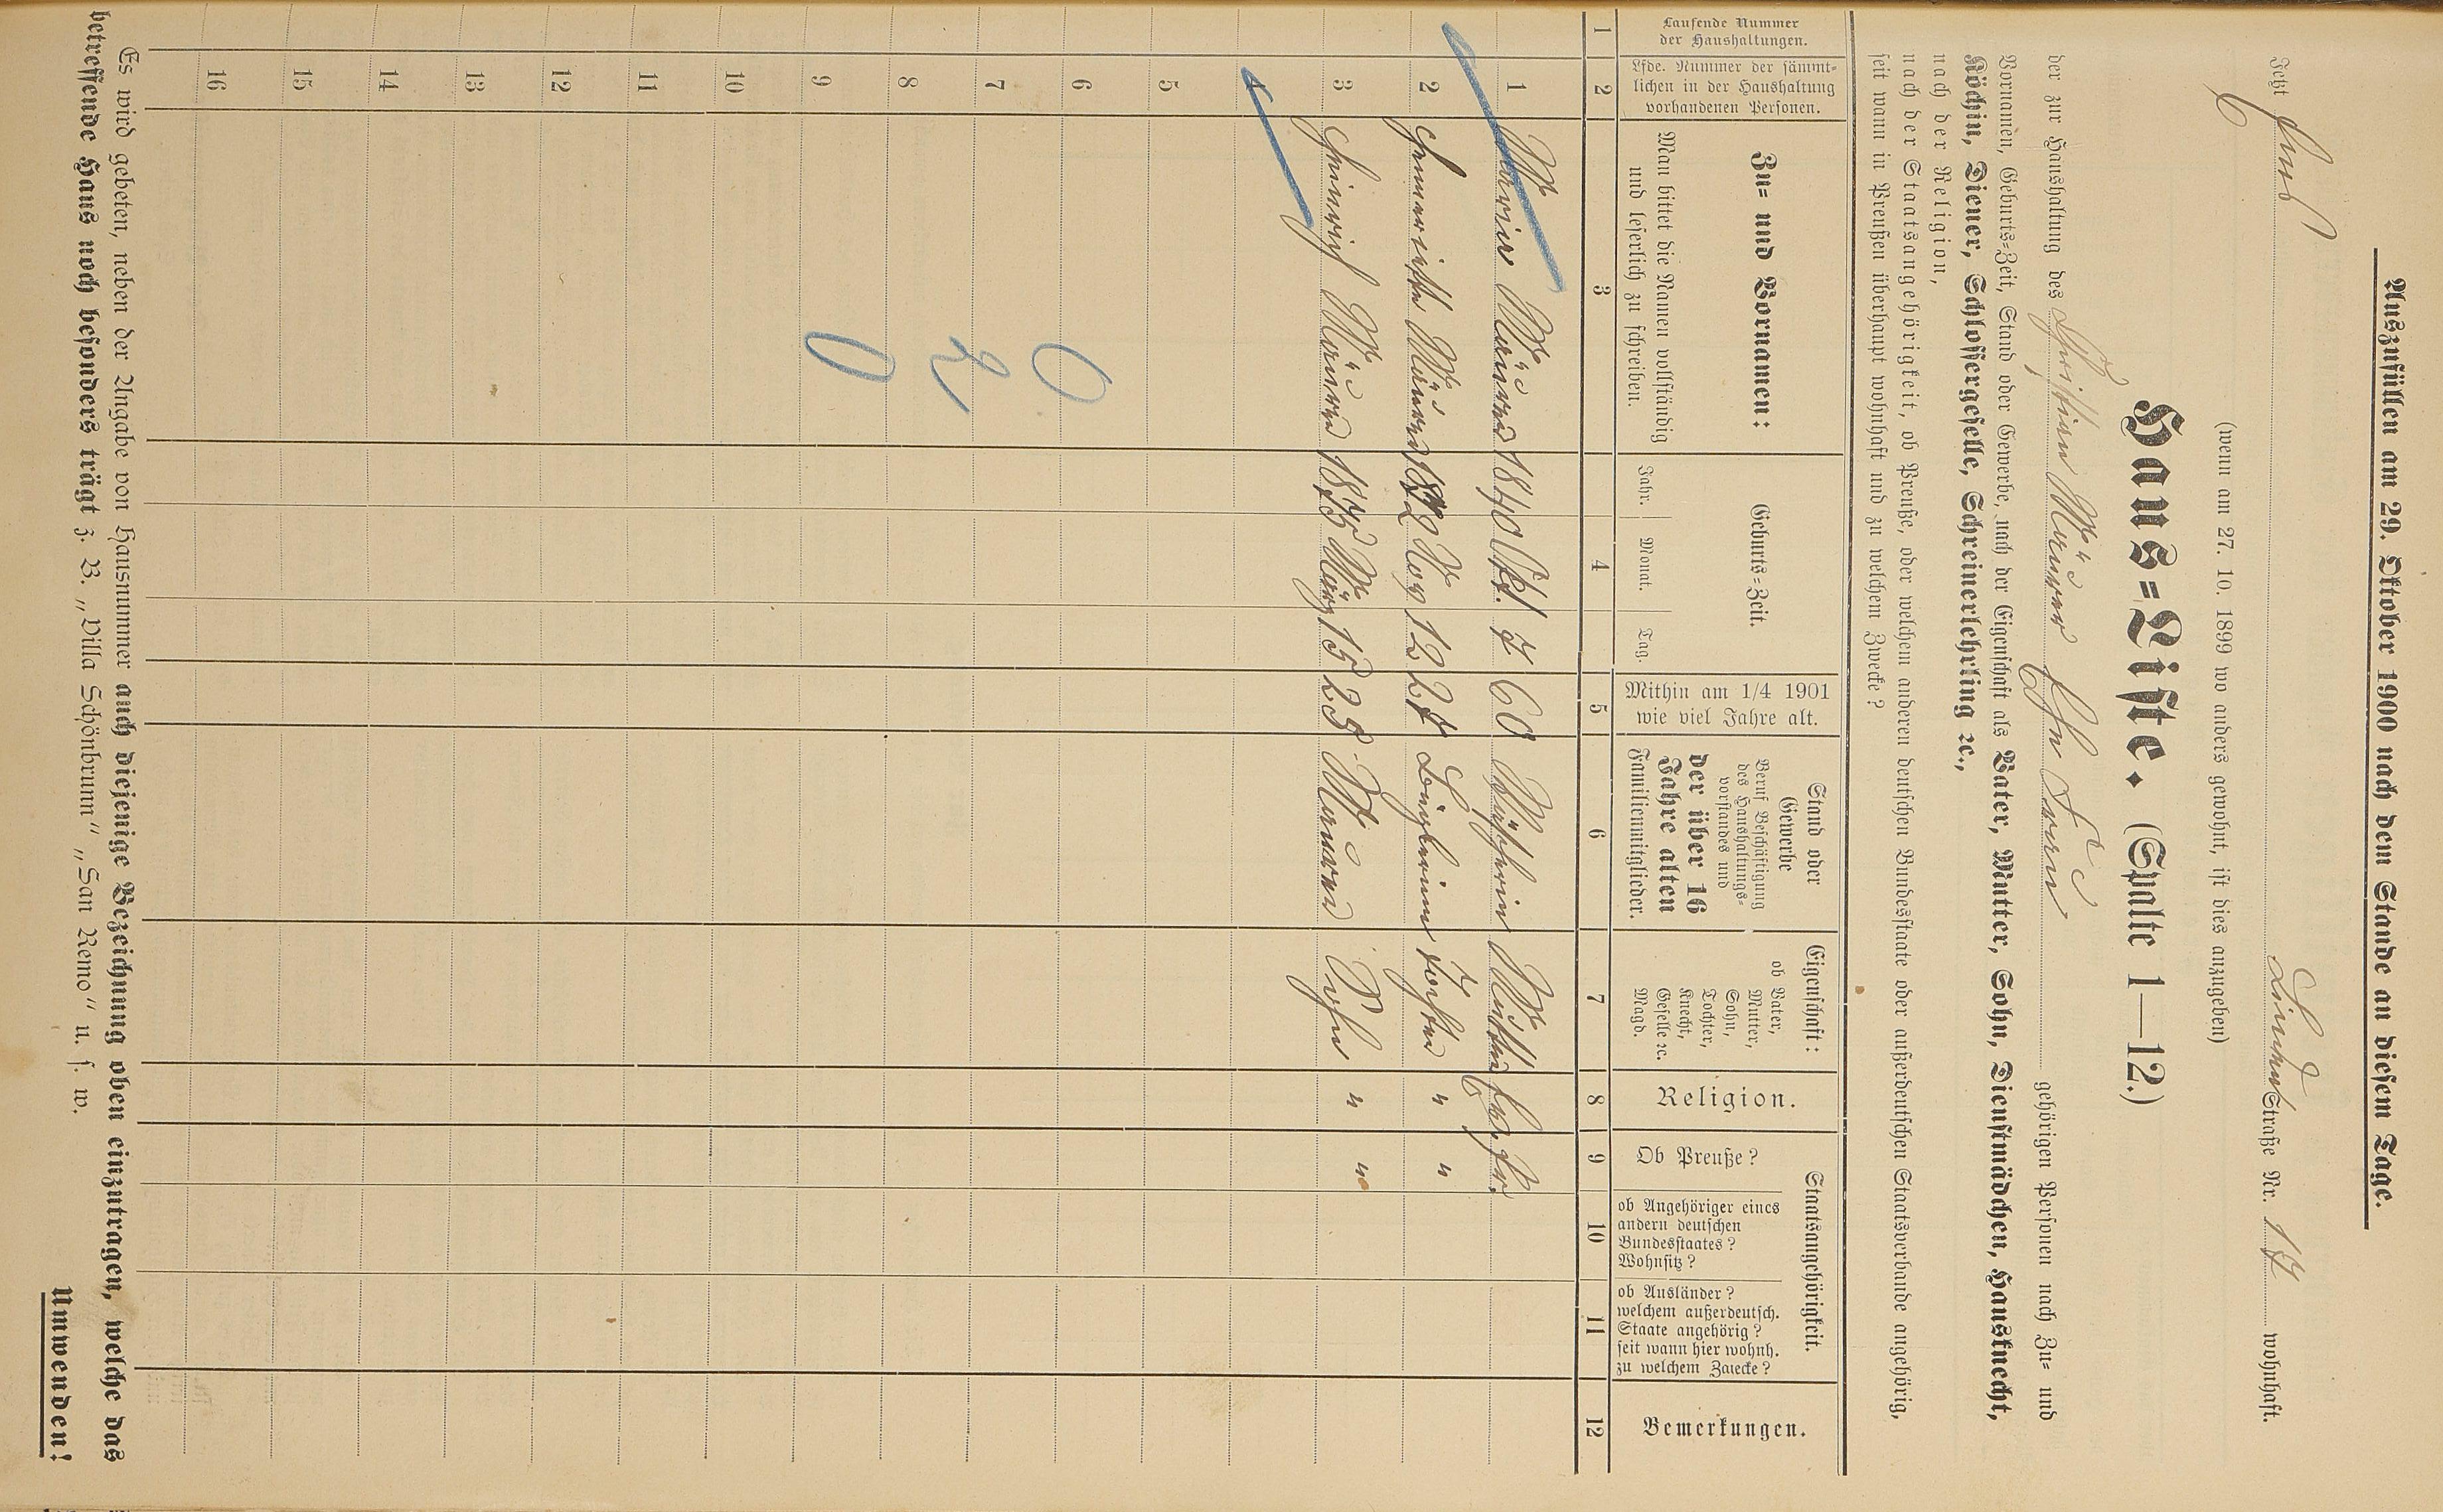 Auszufüllen am 29. Oktober 1900 nach dem Stande an diesem Tage.
Jetzt Linden Straße Nr. 17 wohnhaft.
(wenn am 27. 10. 1899 wo anders gewohnt, ist dies anzugeben)
Haus-Liste. (Spalte 1—12.)
der zur Haushaltung des gehörigen Personen nach Zu- und
Vornamen, Geburts-Zeit, Stand oder Gewerbe, nach der Eigenschaft als Vater, Mutter, Sohn, Dienstmädchen, Hausknecht,
Köchin, Diener, Schlossergeselle, Schreinerlehrling ꝛc.,
nach der Religion,
nach der Staatsangehörigkeit, ob Preuße, oder welchem anderen deutschen Bundesstaate oder außerdeutschen Staatsverbande angehörig,
seit wann in Preußen überhaupt wohnhaft und zu welchem Zwecke?
Laufende Nummer
der Haushaltungen.
Lfde. Nummer der sämmt-
lichen in der Haushaltung
vorhandenen Personen.
Zu- und Vornamen:
Man bittet die Namen vollständig
und leserlich zu schreiben.
Geburts-Zeit.
Jahr. Monat. Tag.
Mithin am 1/4 1901
wie viel Jahre alt.
Stand oder
Gewerbe
Beruf Beschäftigung
des Haushaltungs-
vorstandes und
der über 16
Jahre alten
Familienmitglieder.
Eigenschaft:
ob Vater,
Mutter,
Sohn,
Tochter,
Knecht,
Geselle ꝛc.
Magd.
Religion.
Staatsangehörigkeit.
Ob Preuße?
ob Angehöriger eines
andern deutschen
Bundesstaates?
Wohnsitz?
ob Ausländer?
welchem außerdeutsch.
Staate angehörig?
seit wann hier wohnh.
zu welchem Zwecke?
Bemerkungen.
1 2 3 4 5 6 7 8 9 10 11 12
1 1840 Okt. 7 60 Mutter
2 Nov 12 27 Büglerin Tochter " "
3 Heinrich 1875 März 15 25 Maurer Sohn " "
4
5
6
7
8
9
10
11
12
13
14
15
16
0
2
0
Es wird gebeten, neben der Angabe von Hausnummer auch diejenige Bezeichnung oben einzutragen, welche das
betreffende Haus noch besonders trägt z. B. „Villa Schönbrunn" „San Remo" u. s. w.
Umwenden!